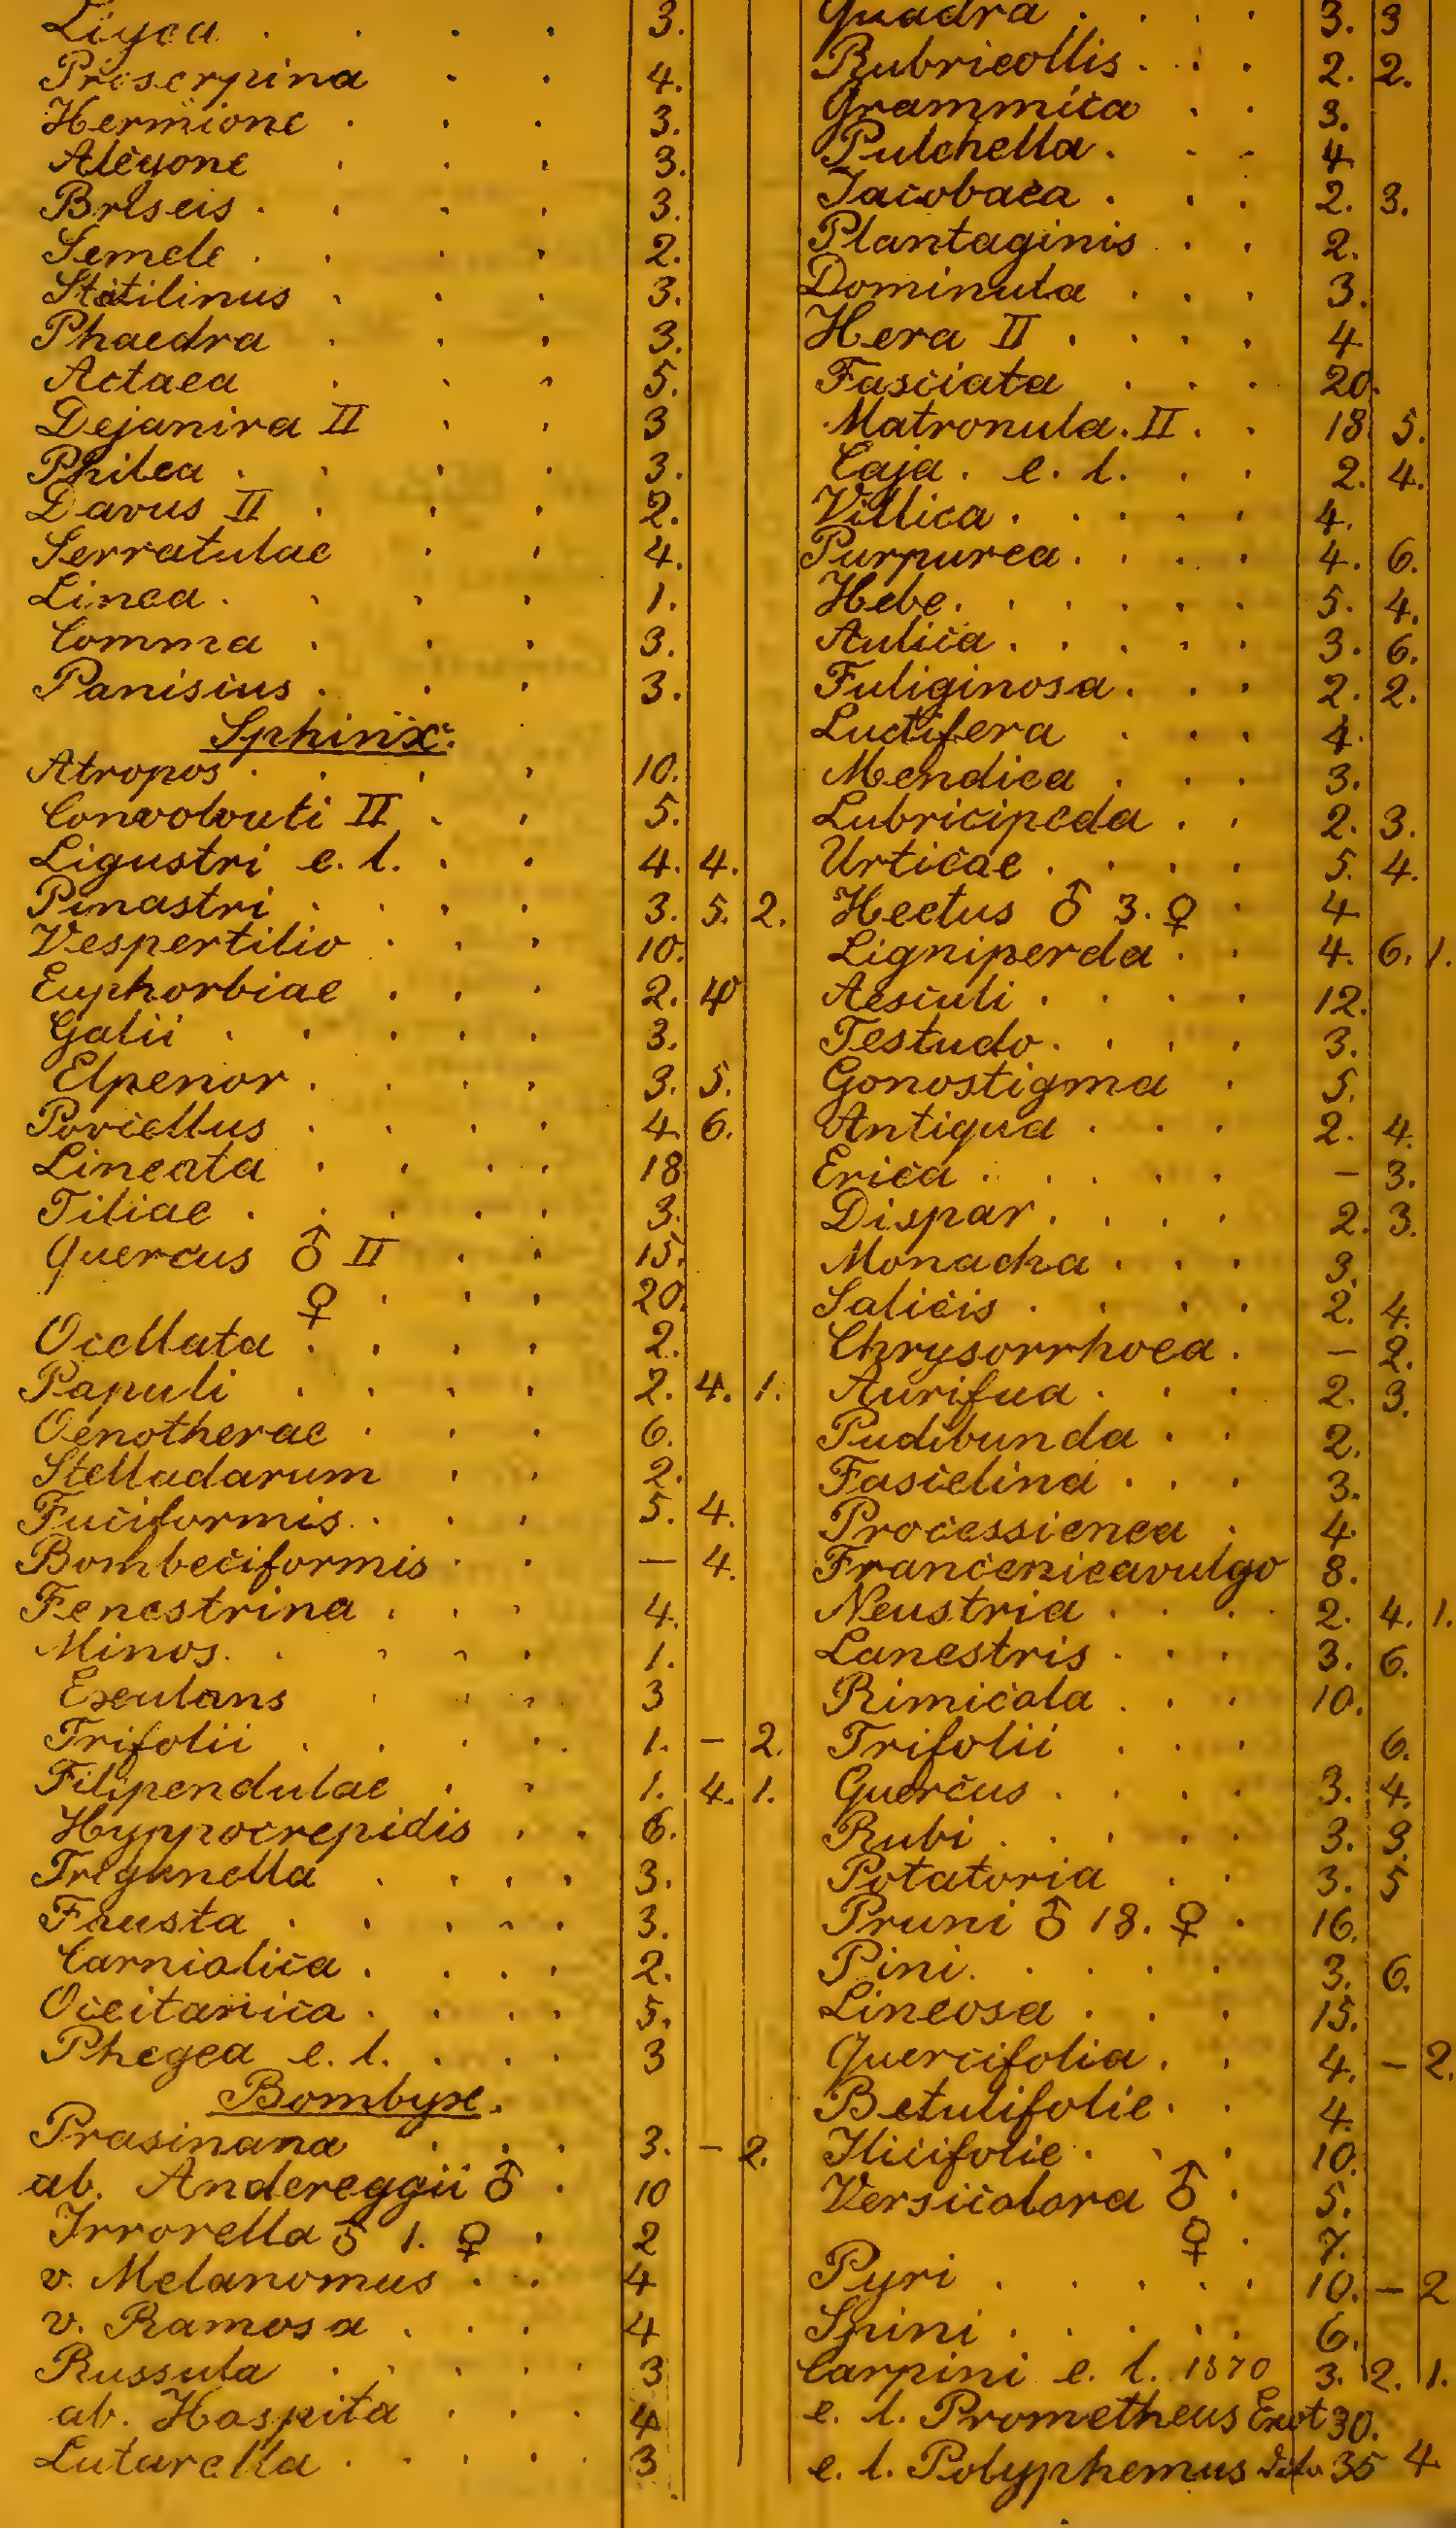 Ligea . . . . 3.
Proserpina . . 4.
Hermione . . . 3.
Alcyone . . . 3.
Briseis . . . . 3.
Semele . . . . 2.
Statilinus . . . 3.
Phaedra . . . 3.
Actaea . . . 5.
Dejanira II . . 3
Philea . . . . 3.
Davus II . . . 2.
Serratulae . . 4.
Linea . . . . 1.
Comma . . . 3.
Panisius . . . 3.
Sphinx.
Atropos . . . . 10.
Convolvuti II . . 5.
Ligustri e. l. . . 4. 4.
Pinastri . . . . 3. 5. 2.
Vespertilio . . . 10.
Euphorbiae . . . 2. 4
Galii . . . . . 3.
Elpenor . . . . 3. 5.
Porcellus . . . . 4. 6.
Lineata . . . . 18
Tiliae . . . . . 3.
Quercus ♂ II . . 15.
♀ . . . 20.
Ocellata . . . . 2.
Papuli . . . . 2. 4. 1.
Oenotherae . . . 6.
Stelladarum . . 2.
Fuciformis . . . 5. 4.
Bombeciformis . . — 4.
Fenestrina . . . 4.
Minos. . . . . 1.
Exulans . . . 3
Trifolii . . . . . 1. — 2.
Filipendulae . . 1. 4. 1.
Hyppocrepidis . . 6.
Trigonella . . . . 3.
Fausta . . . . . 3.
Carniolica . . . . 2.
Occitanica . . . . 5.
Phegea e. l. . . . 3
Bombyx.
Prasinana . . . 3. — 2.
ab. Andereggii ♂ . 10
Irrorella ♂ 1. ♀ . 2
v. Melanomus . . 4
v. Ramosa . . . 4
Russula . . . . . 3
ab. Hospita . . . 4
Luturella . . . . . 3
Quadra . . . . 3. 3
Rubricollis . . . 2. 2.
Grammica . . 3.
Pulchella . . . 4
Jacobaea . . . 2. 3.
Plantaginis . . 2.
Dominula . . . 3.
Hera II . . . . 4
Fasciata . . . 20.
Matronula. II . . 18 5.
Caja . e. l. . . 2. 4.
Villica . . . . . 4.
Purpurea . . . . 4. 6.
Hebe. . . . . . 5. 4.
Aulica . . . . . 3. 6.
Fuliginosa . . . 2. 2.
Luctifera . . . 4.
Mendica . . . 3.
Lubricipeda . . 2. 3.
Urticae . . . . 5. 4.
Hectus ♂ 3. ♀ . 4
Ligniperda . . 4. 6. 1.
Aesculi . . . . 12.
Testudo . . . . 3.
Gonostigma . 5.
Antiqua . . . 2. 4.
Erica . . . . . — 3.
Dispar . . . . 2. 3.
Monacha . . . 3.
Salicis . . . . 2. 4.
Chrysorrhoea . — 2.
Aurifua . . . 2. 3.
Pudibunda . . 2.
Fascelina . . . 3.
Processienea . 4
Francenicavulgo 8.
Neustria . . . . 2. 4. 1.
Lanestris . . . 3. 6.
Rimicola . . . 10.
Trifolii . . . 6.
Quercus . . . . 3. 4.
Rubi . . . . . 3. 3.
Potatoria . . 3. 5
Pruni ♂ 18. ♀ . 16.
Pini. . . . . 3. 6.
Lineosa . . . 15.
Quercifolia . . 4. — 2.
Betulifolie . . 4.
Ilicifolie . . . 10.
Versicolora ♂ . 5.
♀ . 7.
Pyri . . . . . 10. — 2
Spini . . . . . 6.
Carpini e. l. 1870 3. 2. 1.
e. l. Prometheus Exot 30.
e. l. Polyphemus dito 35 4